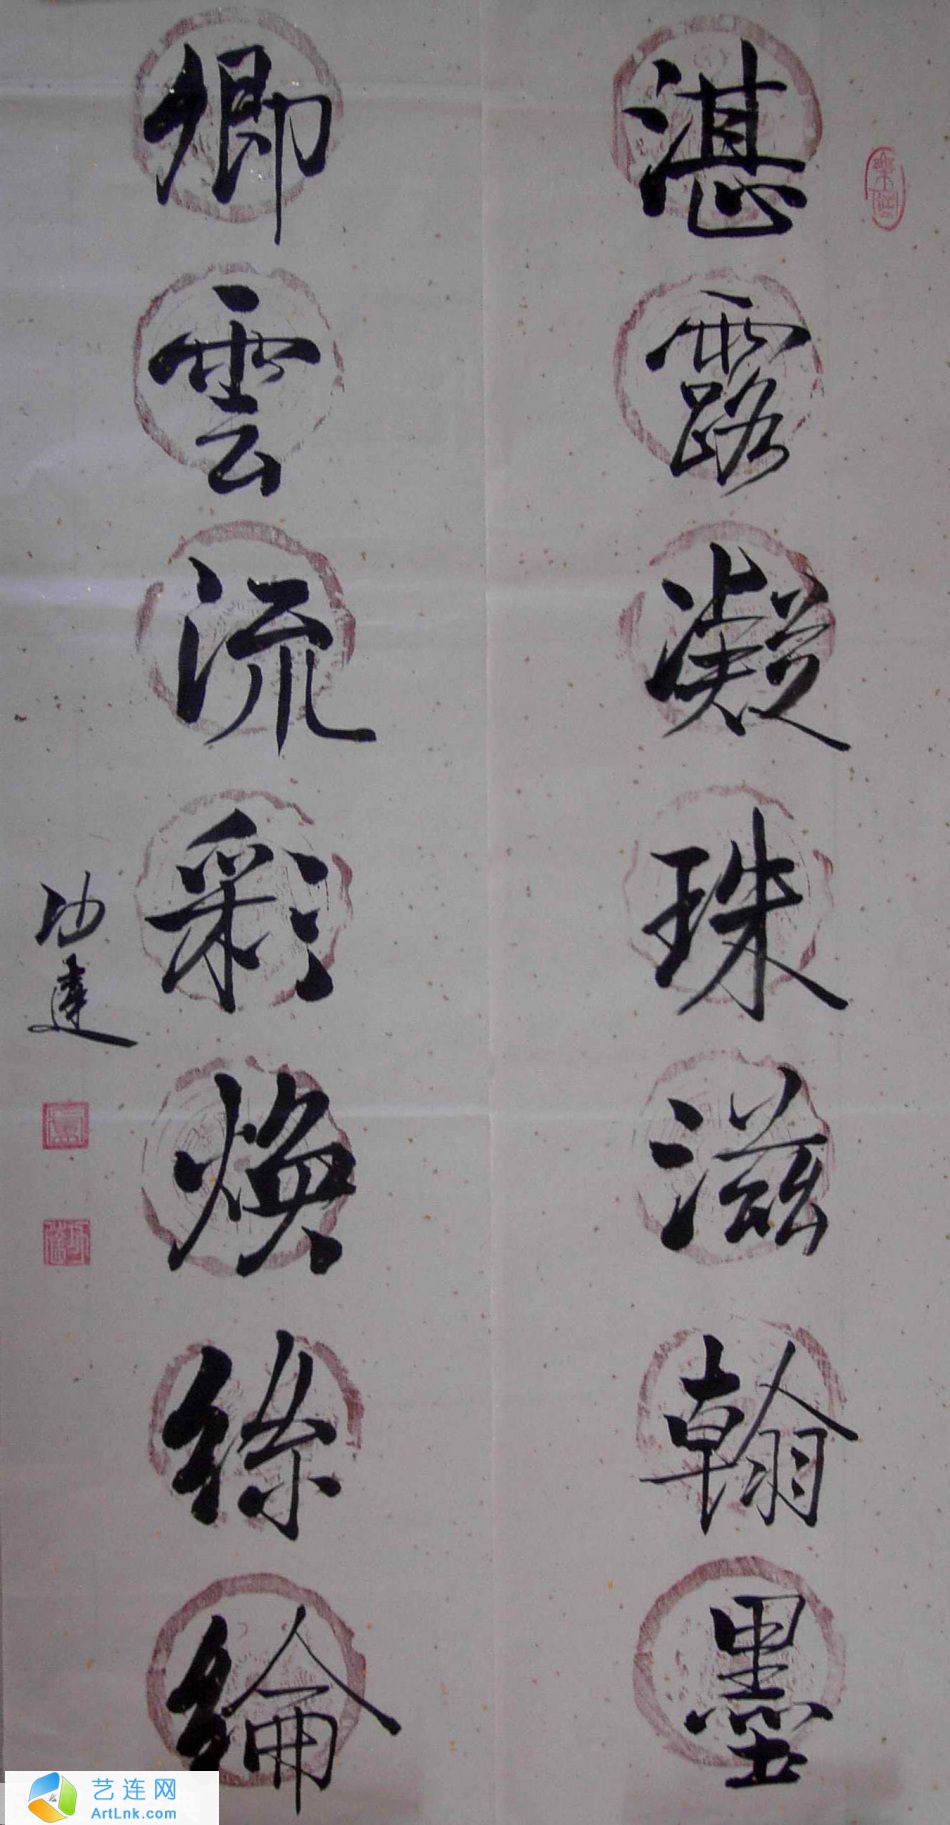 湛露凝珠滋翰墨
卿雲流彩煥絲綸
功達
艺连网
ArtLnk.com